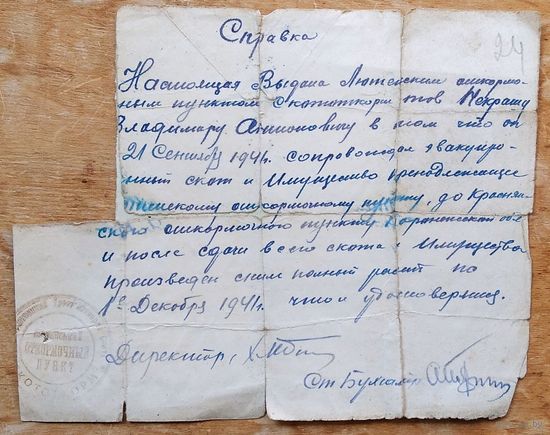 Справка
24
Настоящая Выдана Лютенским откормо
ным пунктом Скототкорм тов Некрашу
Владимиру Антоновичу в том что он
21 Сентября 1941г. сопровождал эвакуиро
ный скот и Имущество
откормочному пункту, до Краснян
ского откормочного пункта Воронежской обл
и после сдачи всего скота и Имущества
произведен с ним полный расчет по
1е Декабря 1941г. что и удостоверяем.
Директор,
Ст Бухгалтер